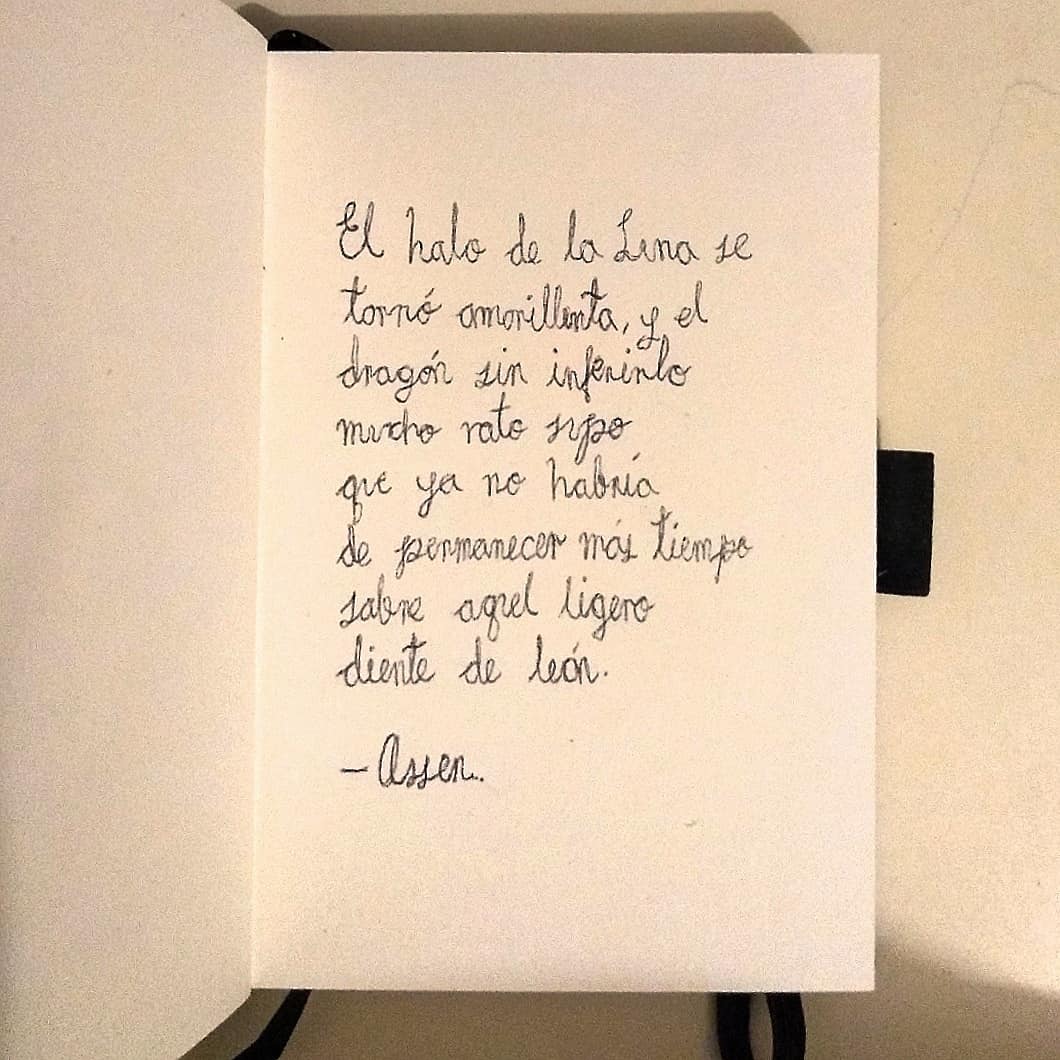 El halo de la Luna se
tornó amarillenta, y el
dragón sin inferirlo
mucho rato supo
que ya no habría
de permanecer más tiempo
sobre aquel ligero
diente de león.
– Assen.